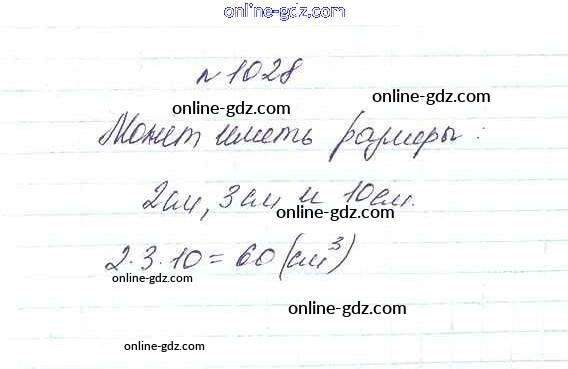 online-gdz.com
№ 1028
online-gdz.com
online-gdz.com
Может иметь размеры:
2 см, 3 см и 10 см.
online-gdz.com
2·3·10 = 60 (см³)
online-gdz.com
online-gdz.com
online-gdz.com